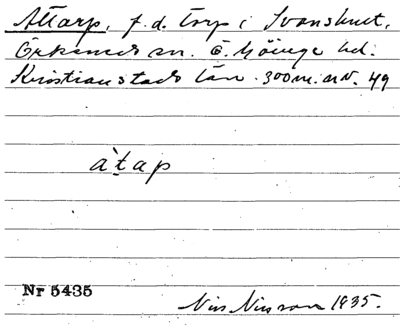 Attarp, f.d. torp i Svanshult,
Örkeneds sn. Ö. Göinge hd.
Kristianstads län. 300 m. n.V. 49
àtap
Nr 5435
Nils Nilsson 1935.